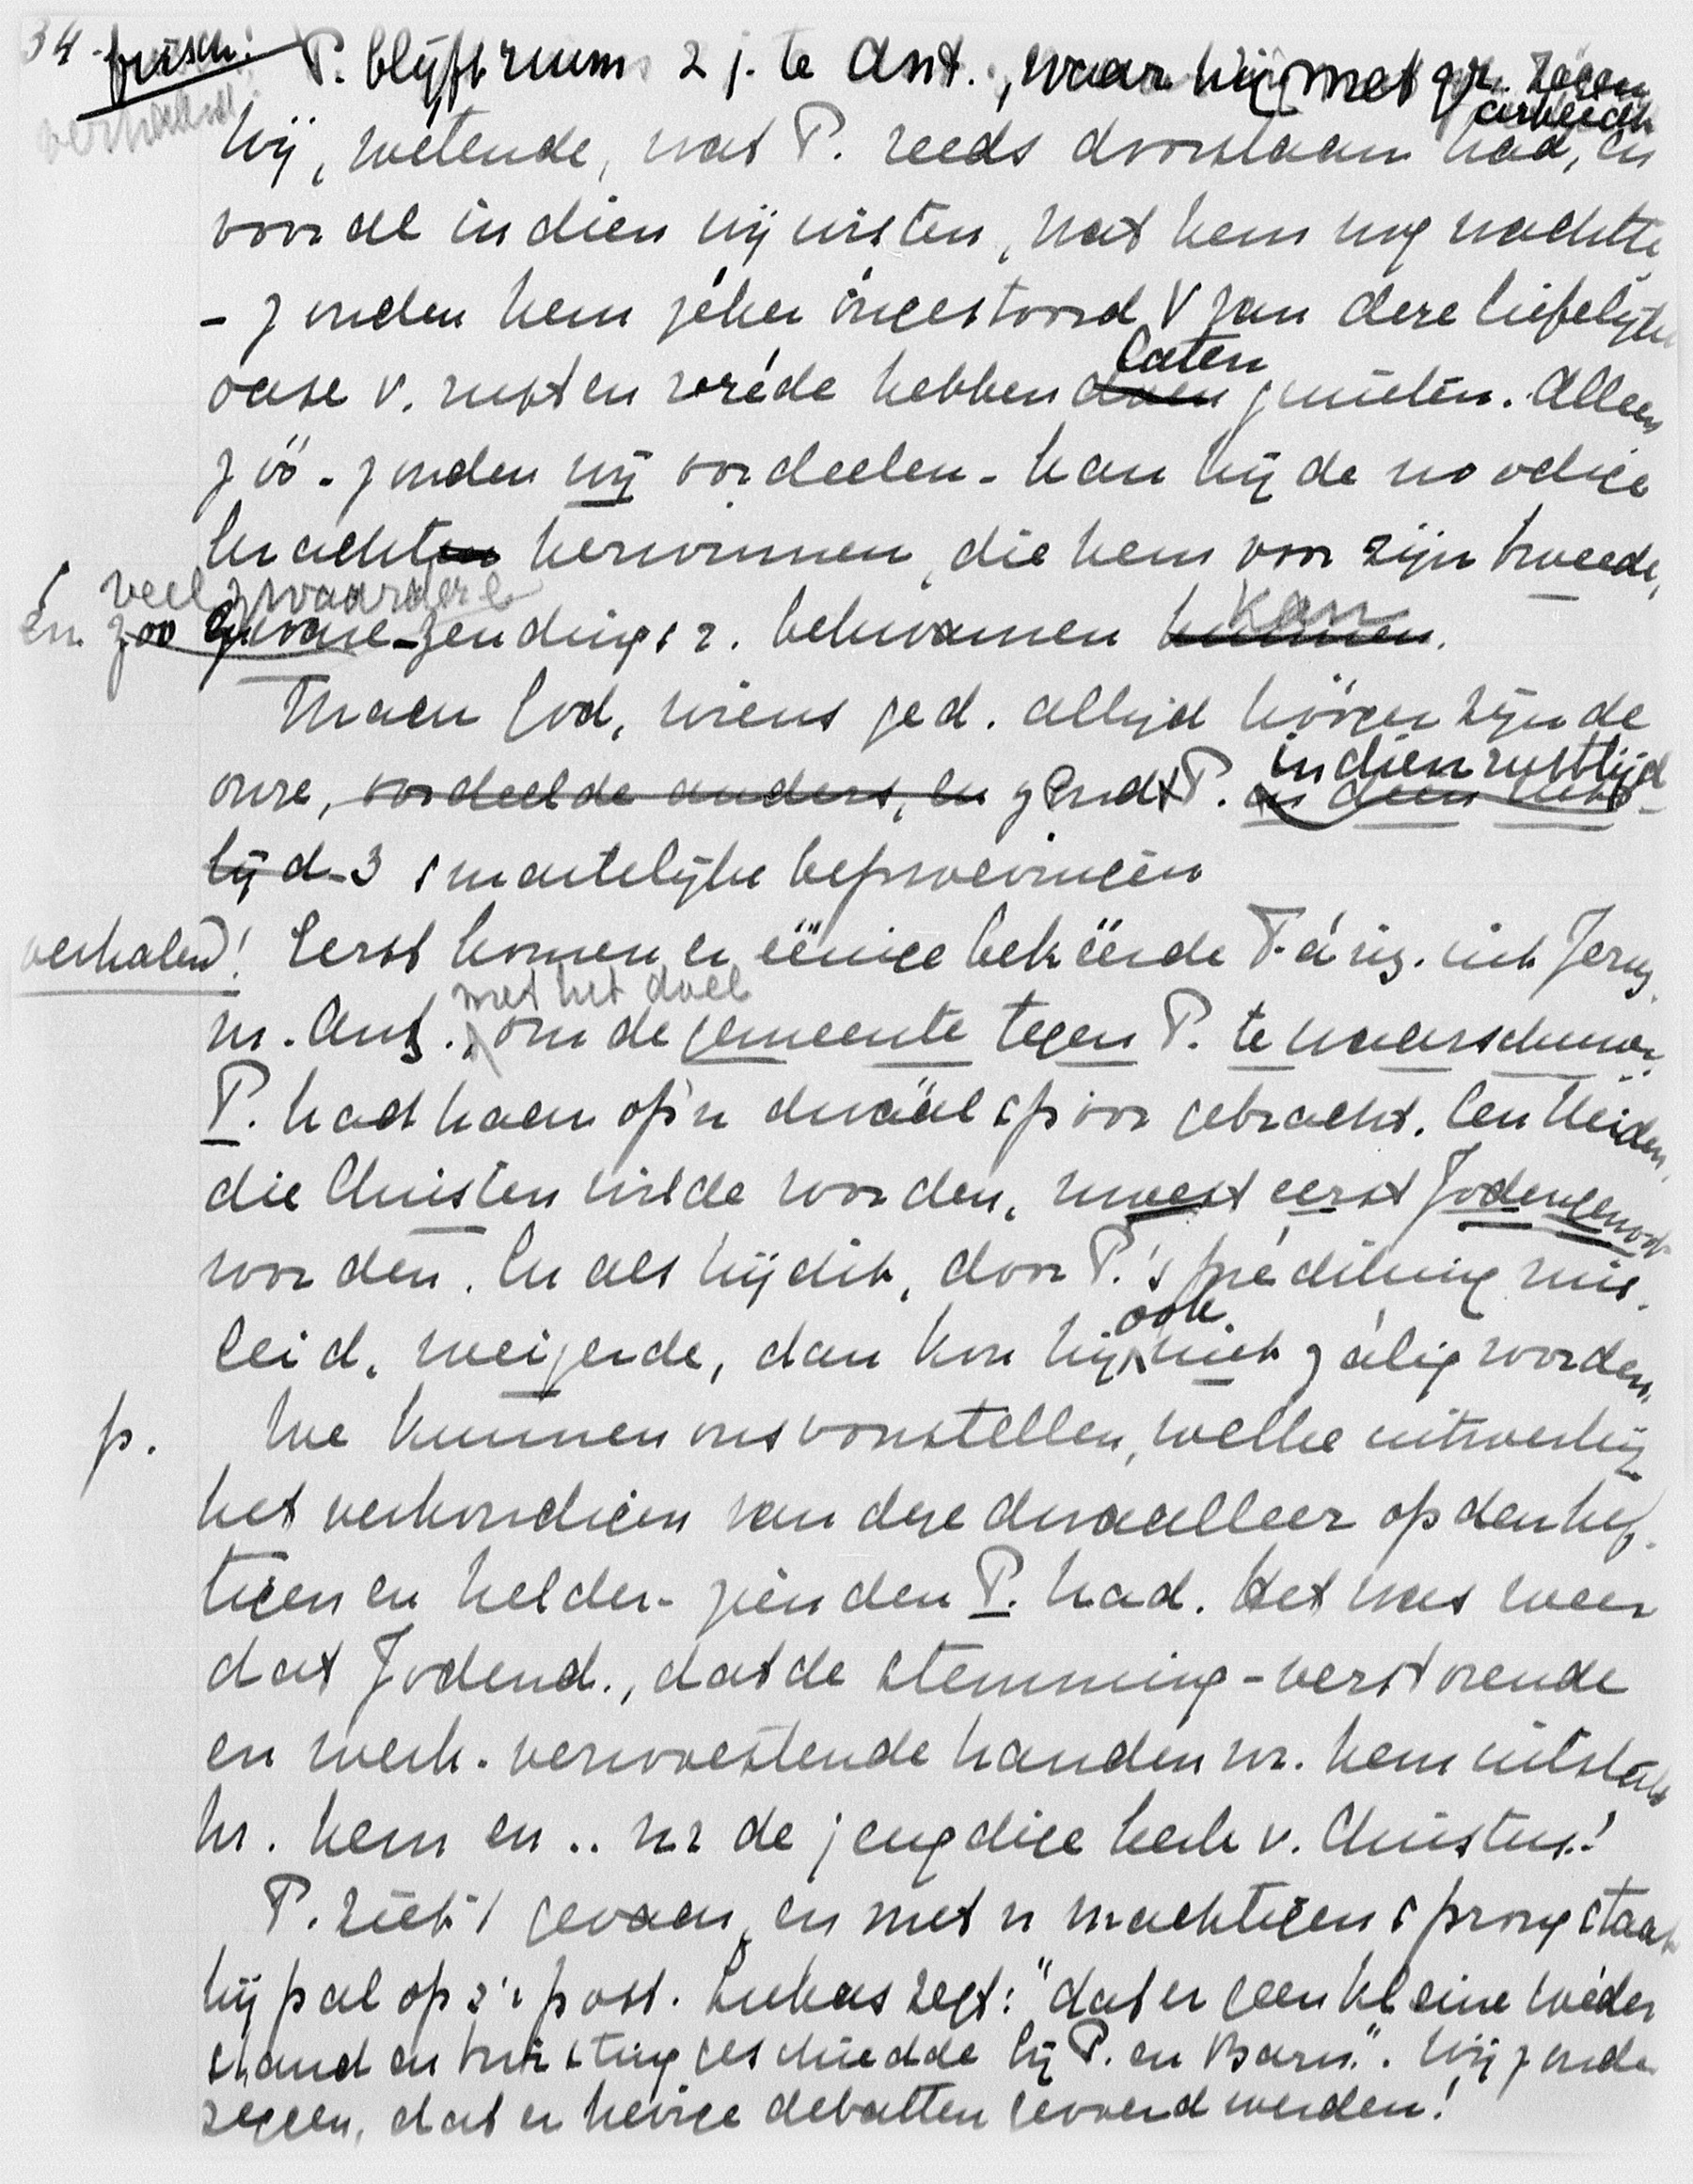 34. frisch: P. blijft ruim 2 j. te Ant., waar hij met gr. zegen
verhalend: arbeidt
Wij, wetende, wat P. reeds doorstaan had, en
vooral indien wij wisten, wat hem nog wachtte
- zouden hem zéker ongestoord van deze liefelijke
oase v. rust en vréde hebben doen laten genieten. Alleen
zóó - zouden wij oordeelen - kan hij de noodige
krachten herwinnen, die hem voor zijn tweede,
én veel zwaardere
zoo zware zendingsr. bekwamen kunnen. kan
Maar God, wiens ged. altijd hóóger zijn de
onze, oordeelde anders, en zendt P. in dien rusttijd in dien rust-
tijd 3 smartelijke beproevingen
verhalen! Eerst komen er eenige bekeerde Fariz. uit Jeruz.
nr. Ant. met het doel om de gemeente tegen P. te waarschuwen
P. had haar op 'n dwaalspoor gebracht. Een Heiden,
die Christen wilde worden, moest eerst Jodengenoot
worden. En als hij dit, door P.'s prediking mis-
leid, weigerde, dan kon hij ook niet zalig worden.
p. We kunnen ons voorstellen, welke uitwerking
het verkondigen van deze dwaalleer op den hef-
tigen en helder-zienden P. had. Het was weer
dat Jodend., dat de stemming-verstorende
en werk-verwoestende handen nr. hem uitstak
nr. hem en .. nr de jeugdige kerk v. Christus!
P. ziet 't gevaar, en met 'n machtigen sprong staat
hij pal op z'n post. Lukas zegt: "dat er geen kleine wéder
stand en twisting geschiedde bij P. en Barn.". Wij zouden
zeggen, dat er hevige debatten gevoerd werden!